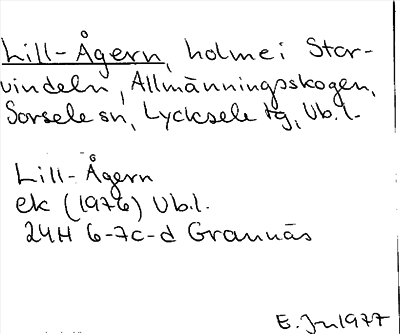 Lill-Ågern, holme i Stor-
vindeln, Allmänningsskogen,
Sorsele sn, Lycksele tg, Vb.l.
Lill-Ågern
ek (1976) Vb.l.
24H 6-7c-d Grannäs
E. Jn 1977